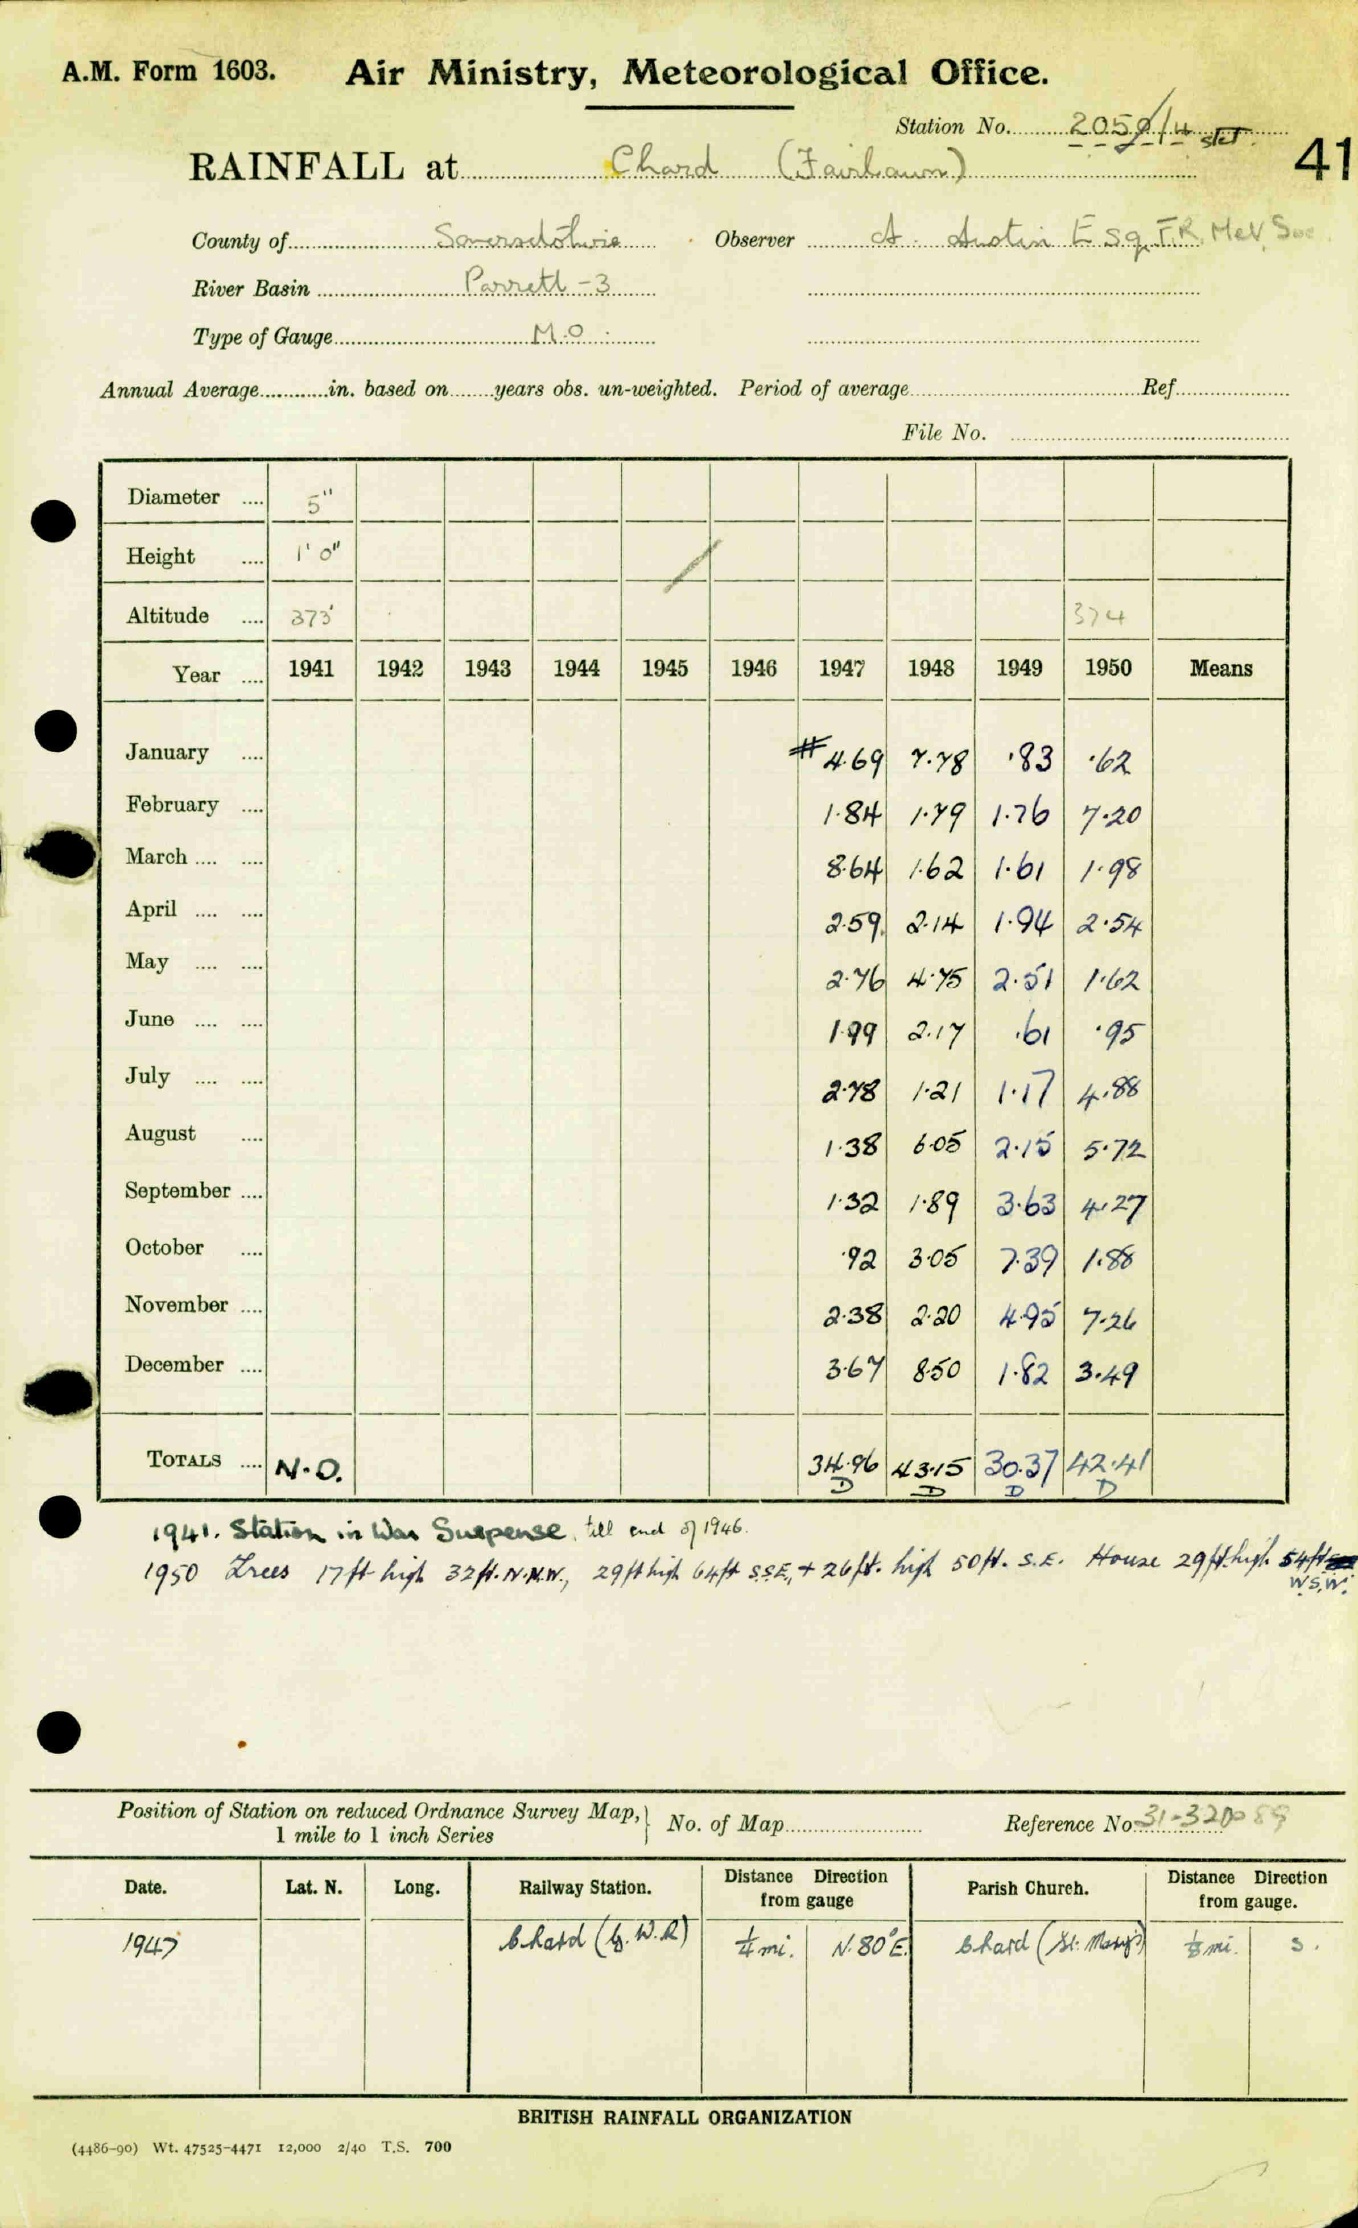 A.M. Form 1603. Air Ministry, Meteorological Office.
Station No. 2059/4 stet.
41
RAINFALL at Chard (Fairlawn)
County of Somersetshire Observer A. Austin Esq. F.R. Met. Soc.
River Basin Parrett - 3
Type of Gauge M.O.
Annual Average in. based on years obs. un-weighted. Period of average Ref
File No.
Diameter 5"
Height 1' 0"
Altitude 373' 374
Year 1941 1942 1943 1944 1945 1946 1947 1948 1949 1950 Means
January # 4.69 7.78 .83 .62
February 1.84 1.79 1.76 7.20
March 8.64 1.62 1.61 1.98
April 2.59 2.14 1.94 2.54
May 2.76 4.75 2.51 1.62
June 1.99 2.17 .61 .95
July 2.78 1.21 1.17 4.88
August 1.38 6.05 2.15 5.72
September 1.32 1.89 3.63 4.27
October .92 3.05 7.39 1.88
November 2.38 2.20 4.95 7.26
December 3.67 8.50 1.82 3.49
TOTALS N.O. 34.96 43.15 30.37 42.41
D D D D
1941. Station in War Suspense till end of 1946.
1950 Trees 17ft high 32ft. N.N.W., 29ft high 64ft S.S.E., + 26ft. high 50ft. S.E. House 29ft. high 54ft
W.S.W.
Position of Station on reduced Ordnance Survey Map, 1 mile to 1 inch Series No. of Map Reference No 31-320 089
Date. Lat. N. Long. Railway Station. Distance Direction from gauge Parish Church. Distance Direction from gauge.
1947 Chard (G.W.R) ¼ mi. N.80°E. Chard (St. Mary's) ⅛ mi. S.
BRITISH RAINFALL ORGANIZATION
(4486-90) Wt. 47525-4471 12,000 2/40 T.S. 700